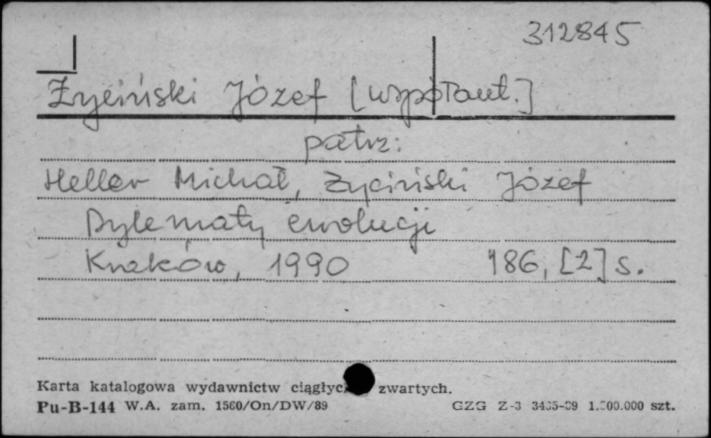 312845
Życiński Józef [współaut.]
patrz:
Heller Michał, Życiński Józef
Dylematy ewolucji
Kraków, 1990 186, [2] s.
Karta katalogowa wydawnictw zwartych.
Pu-B-144 W.A. zam. 1560/On/DW/89 GZG Z-3 szt.